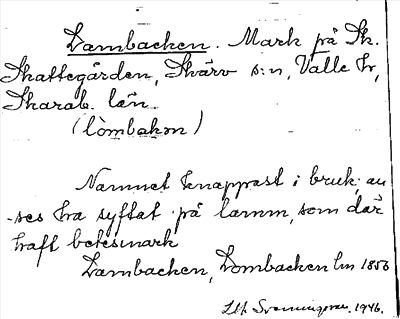 Lambacken. Mark på Sk.
Skattegården, Skärv s:n, Valle hr,
Skarab. län.
(lòmbakən)
Namnet knappast i bruk; an-
ses ha syftat på lamm, som där
haft betesmark
Lambacken, Lombacken Lm 1856
1946.